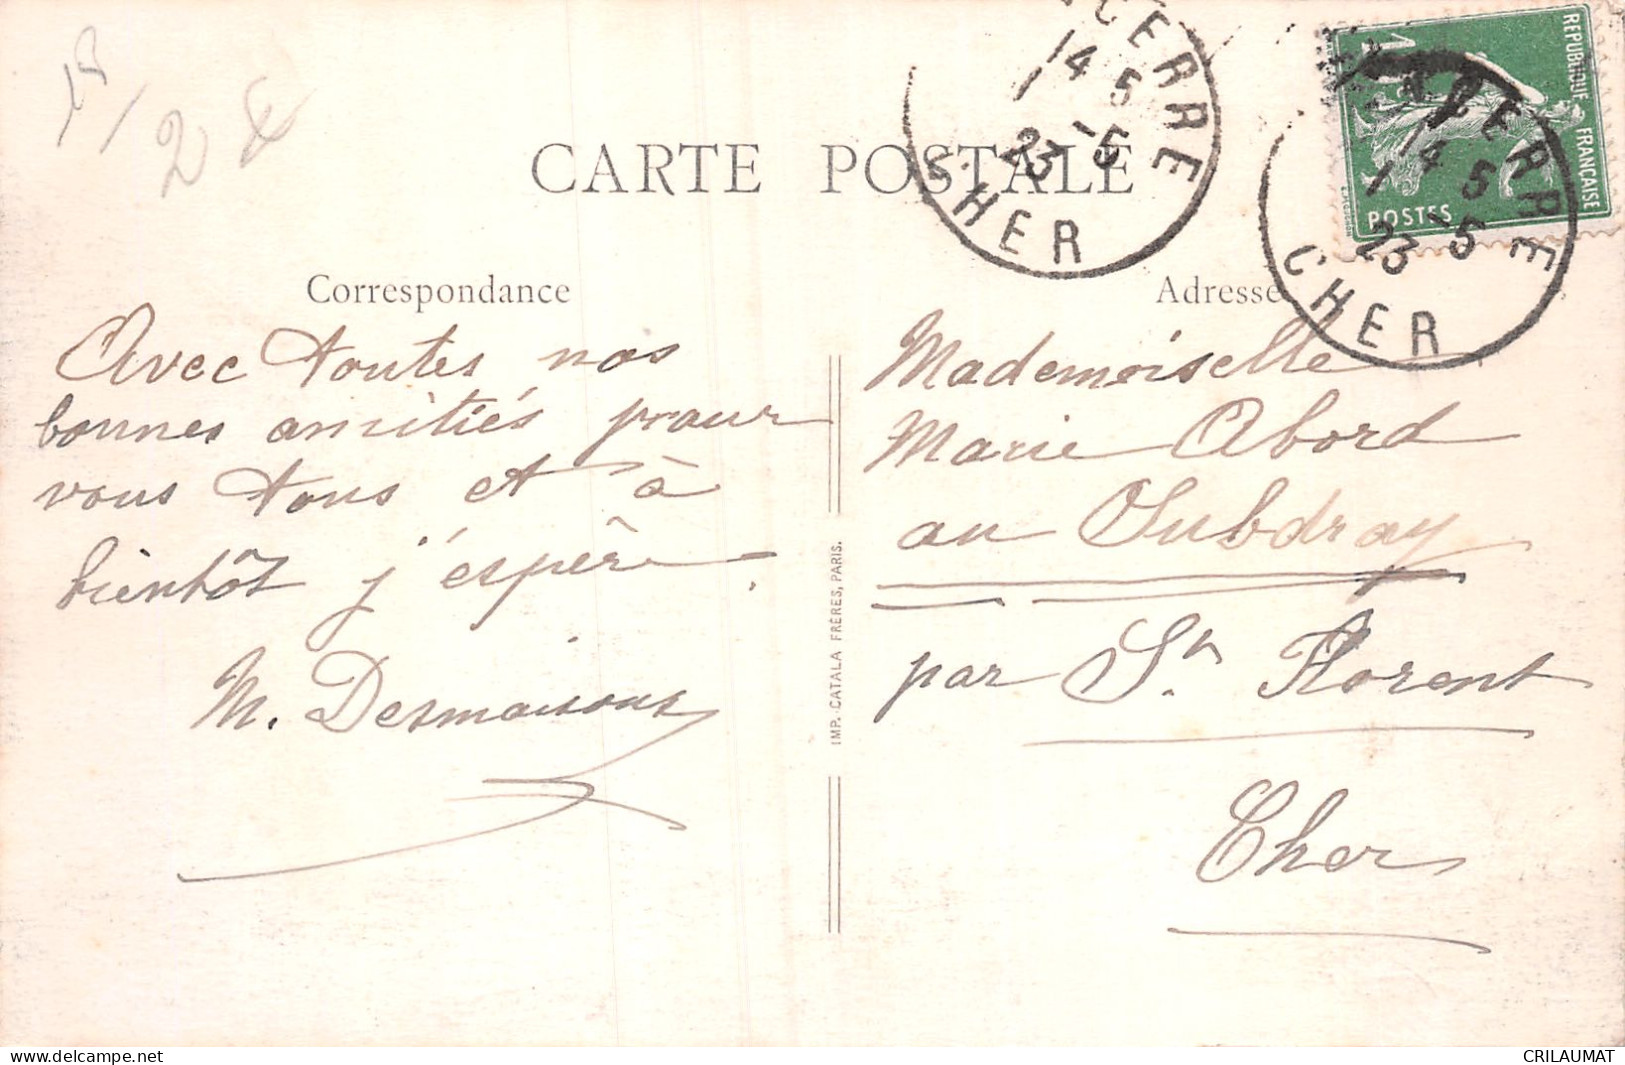 CARTE POSTALE
Correspondance
Avec toutes nos
bonnes amitiés pour
vous tous et à
bientôt j'espère.
M. Desmaisons
IMP. CATALA FRÈRES, PARIS.
Adresse
Mademoiselle
Marie Abord
au Subdray
par St Florent
Cher
CERRE
14 5
1 -5
23
CHER
REPUBLIQUE FRANÇAISE
POSTES
CERRE
14 5
1 -5
23
CHER
2 €
delcampe.net
CRILAUMAT